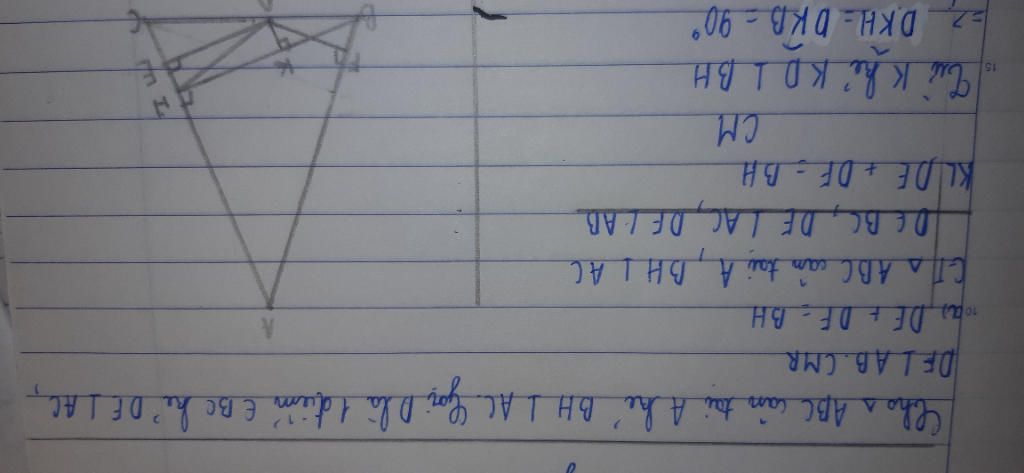 Cho △ ABC cân tại A kẻ BH ⊥ AC. Gọi D là 1 điểm ∈ BC kẻ DE ⊥ AC,
DF ⊥ AB. CMR
a) DE + DF = BH
GT △ ABC cân tại A, BH ⊥ AC
D ∈ BC, DE ⊥ AC, DF ⊥ AB
KL DE + DF = BH
CM
Từ K kẻ KD ⊥ BH
=> DKH = DKB = 90°
A
H
E
C
D
K
F
B
10
15